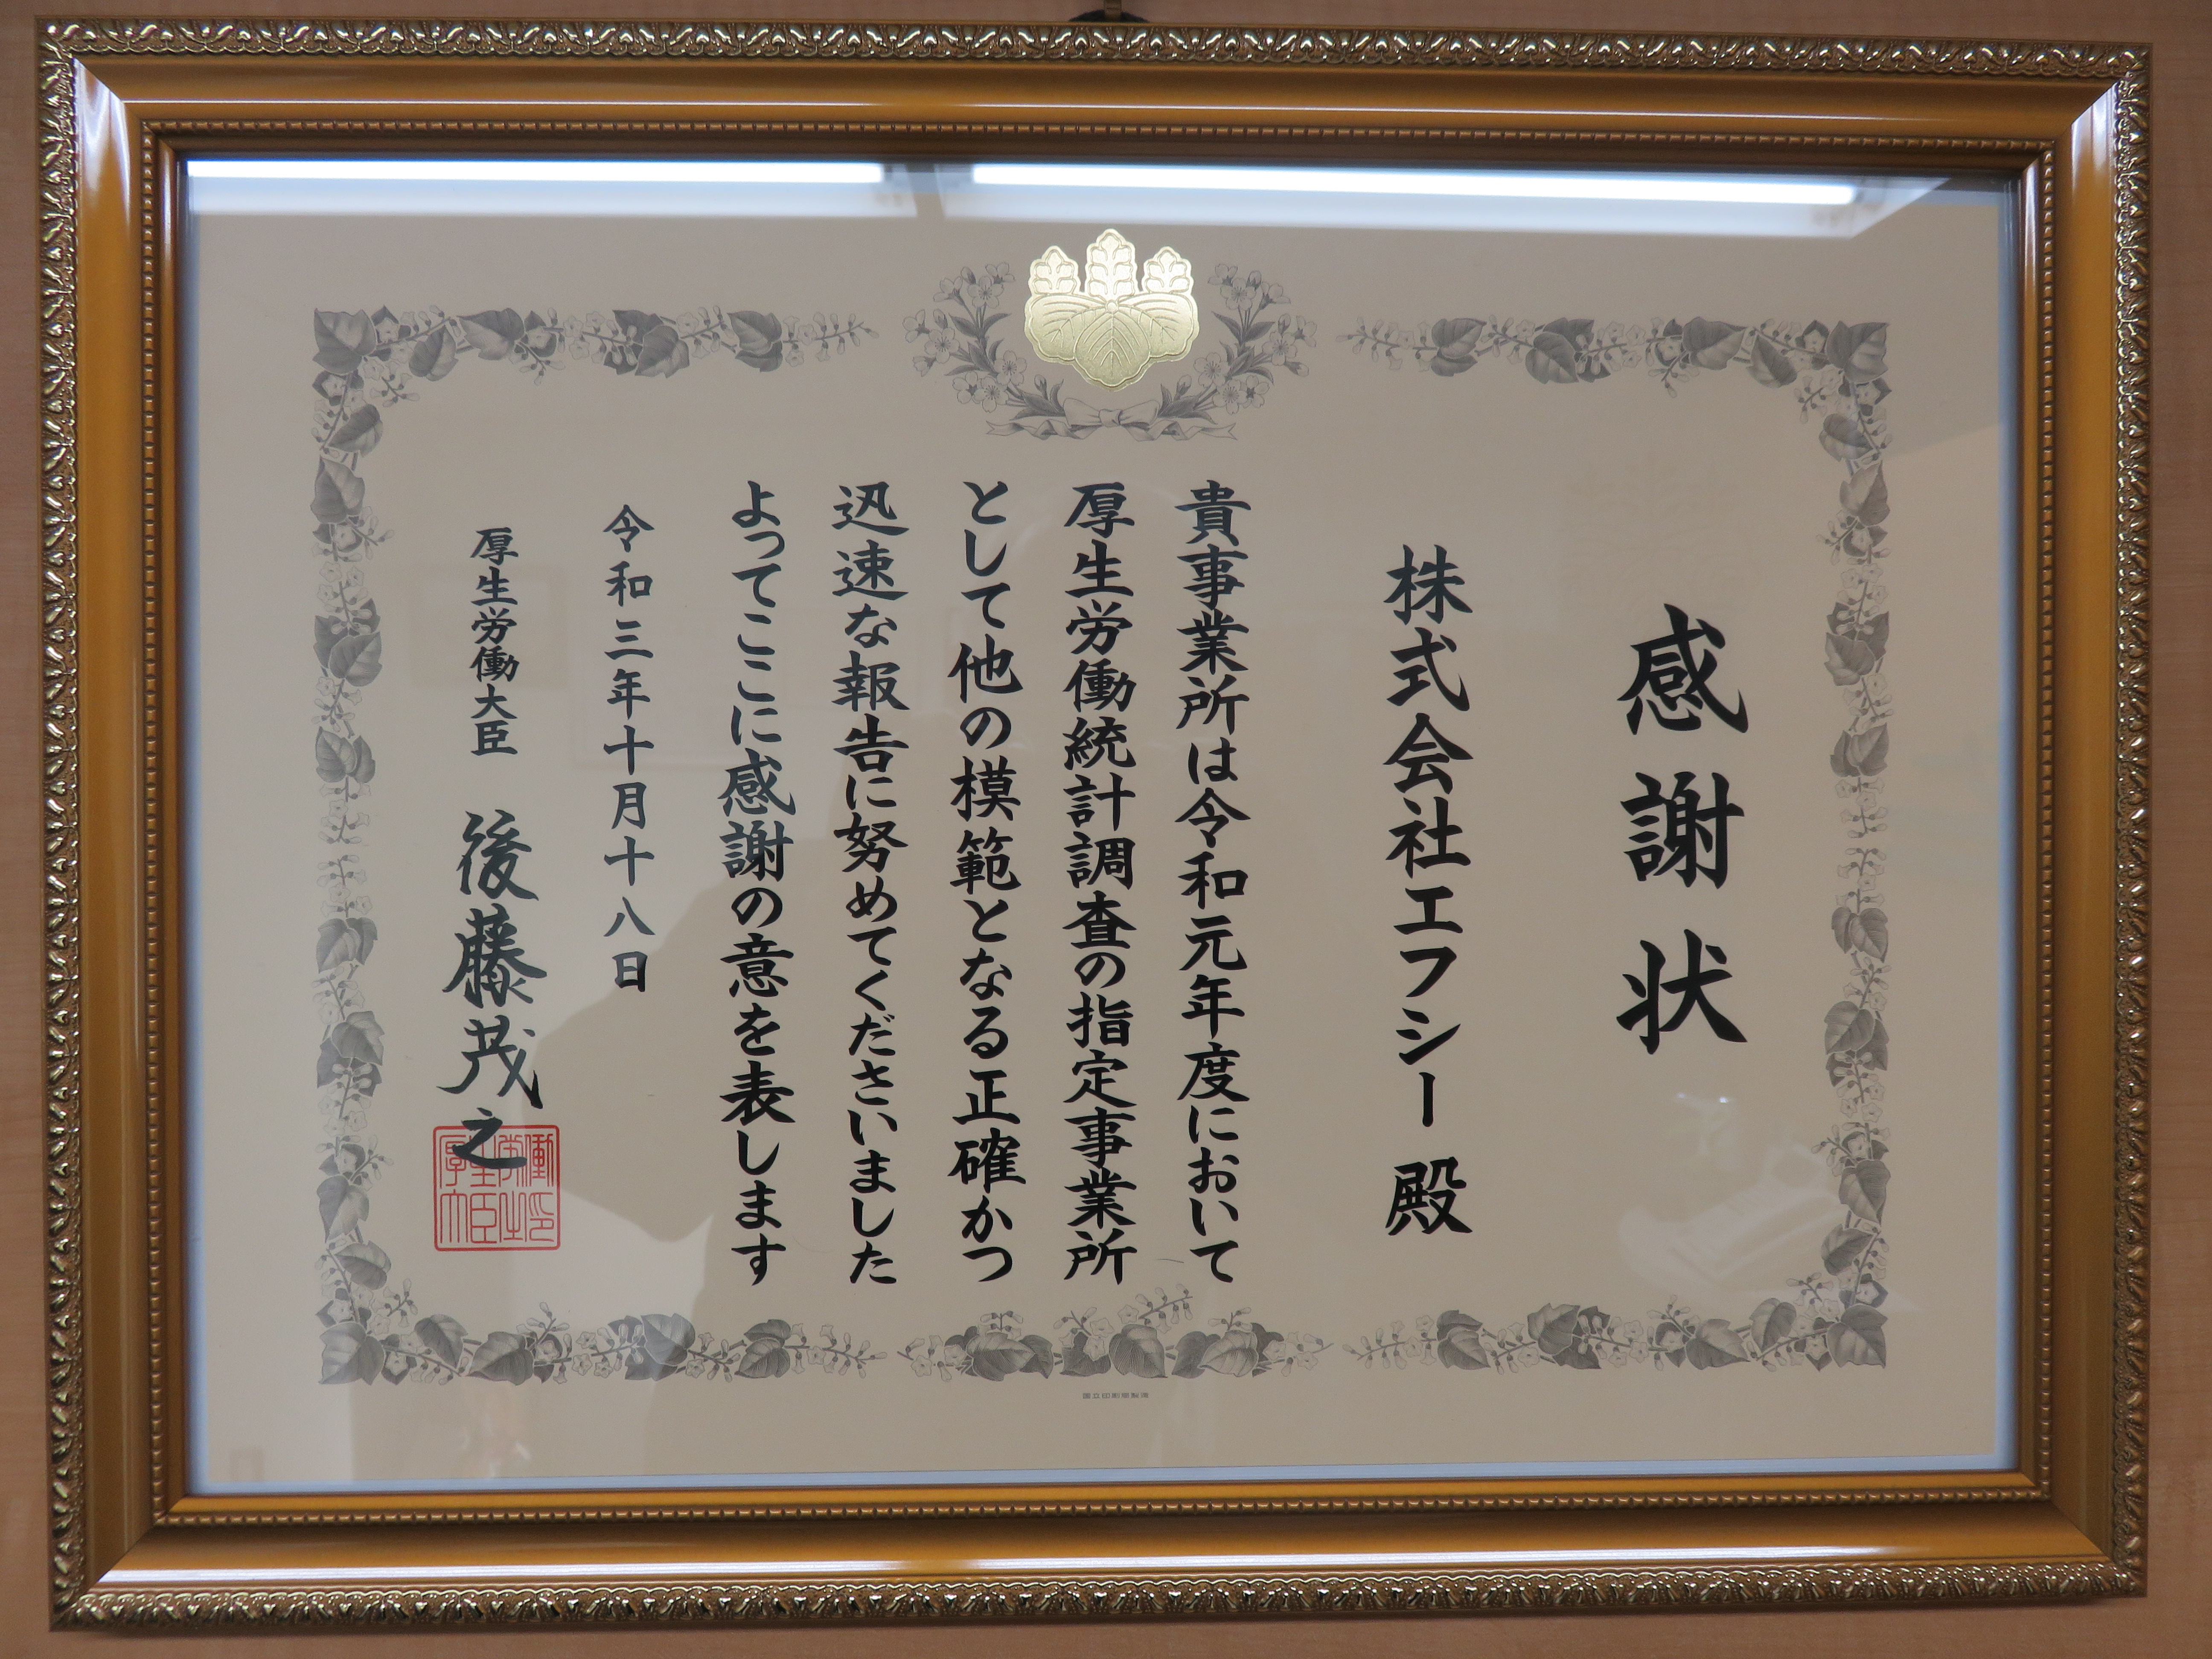 感謝状
株式会社エフシー 殿
貴事業所は令和元年度において
厚生労働統計調査の指定事業所
として他の模範となる正確かつ
迅速な報告に努めてくださいました
よってここに感謝の意を表します
令和三年十月十八日
厚生労働大臣 後藤茂之
国立印刷局製造